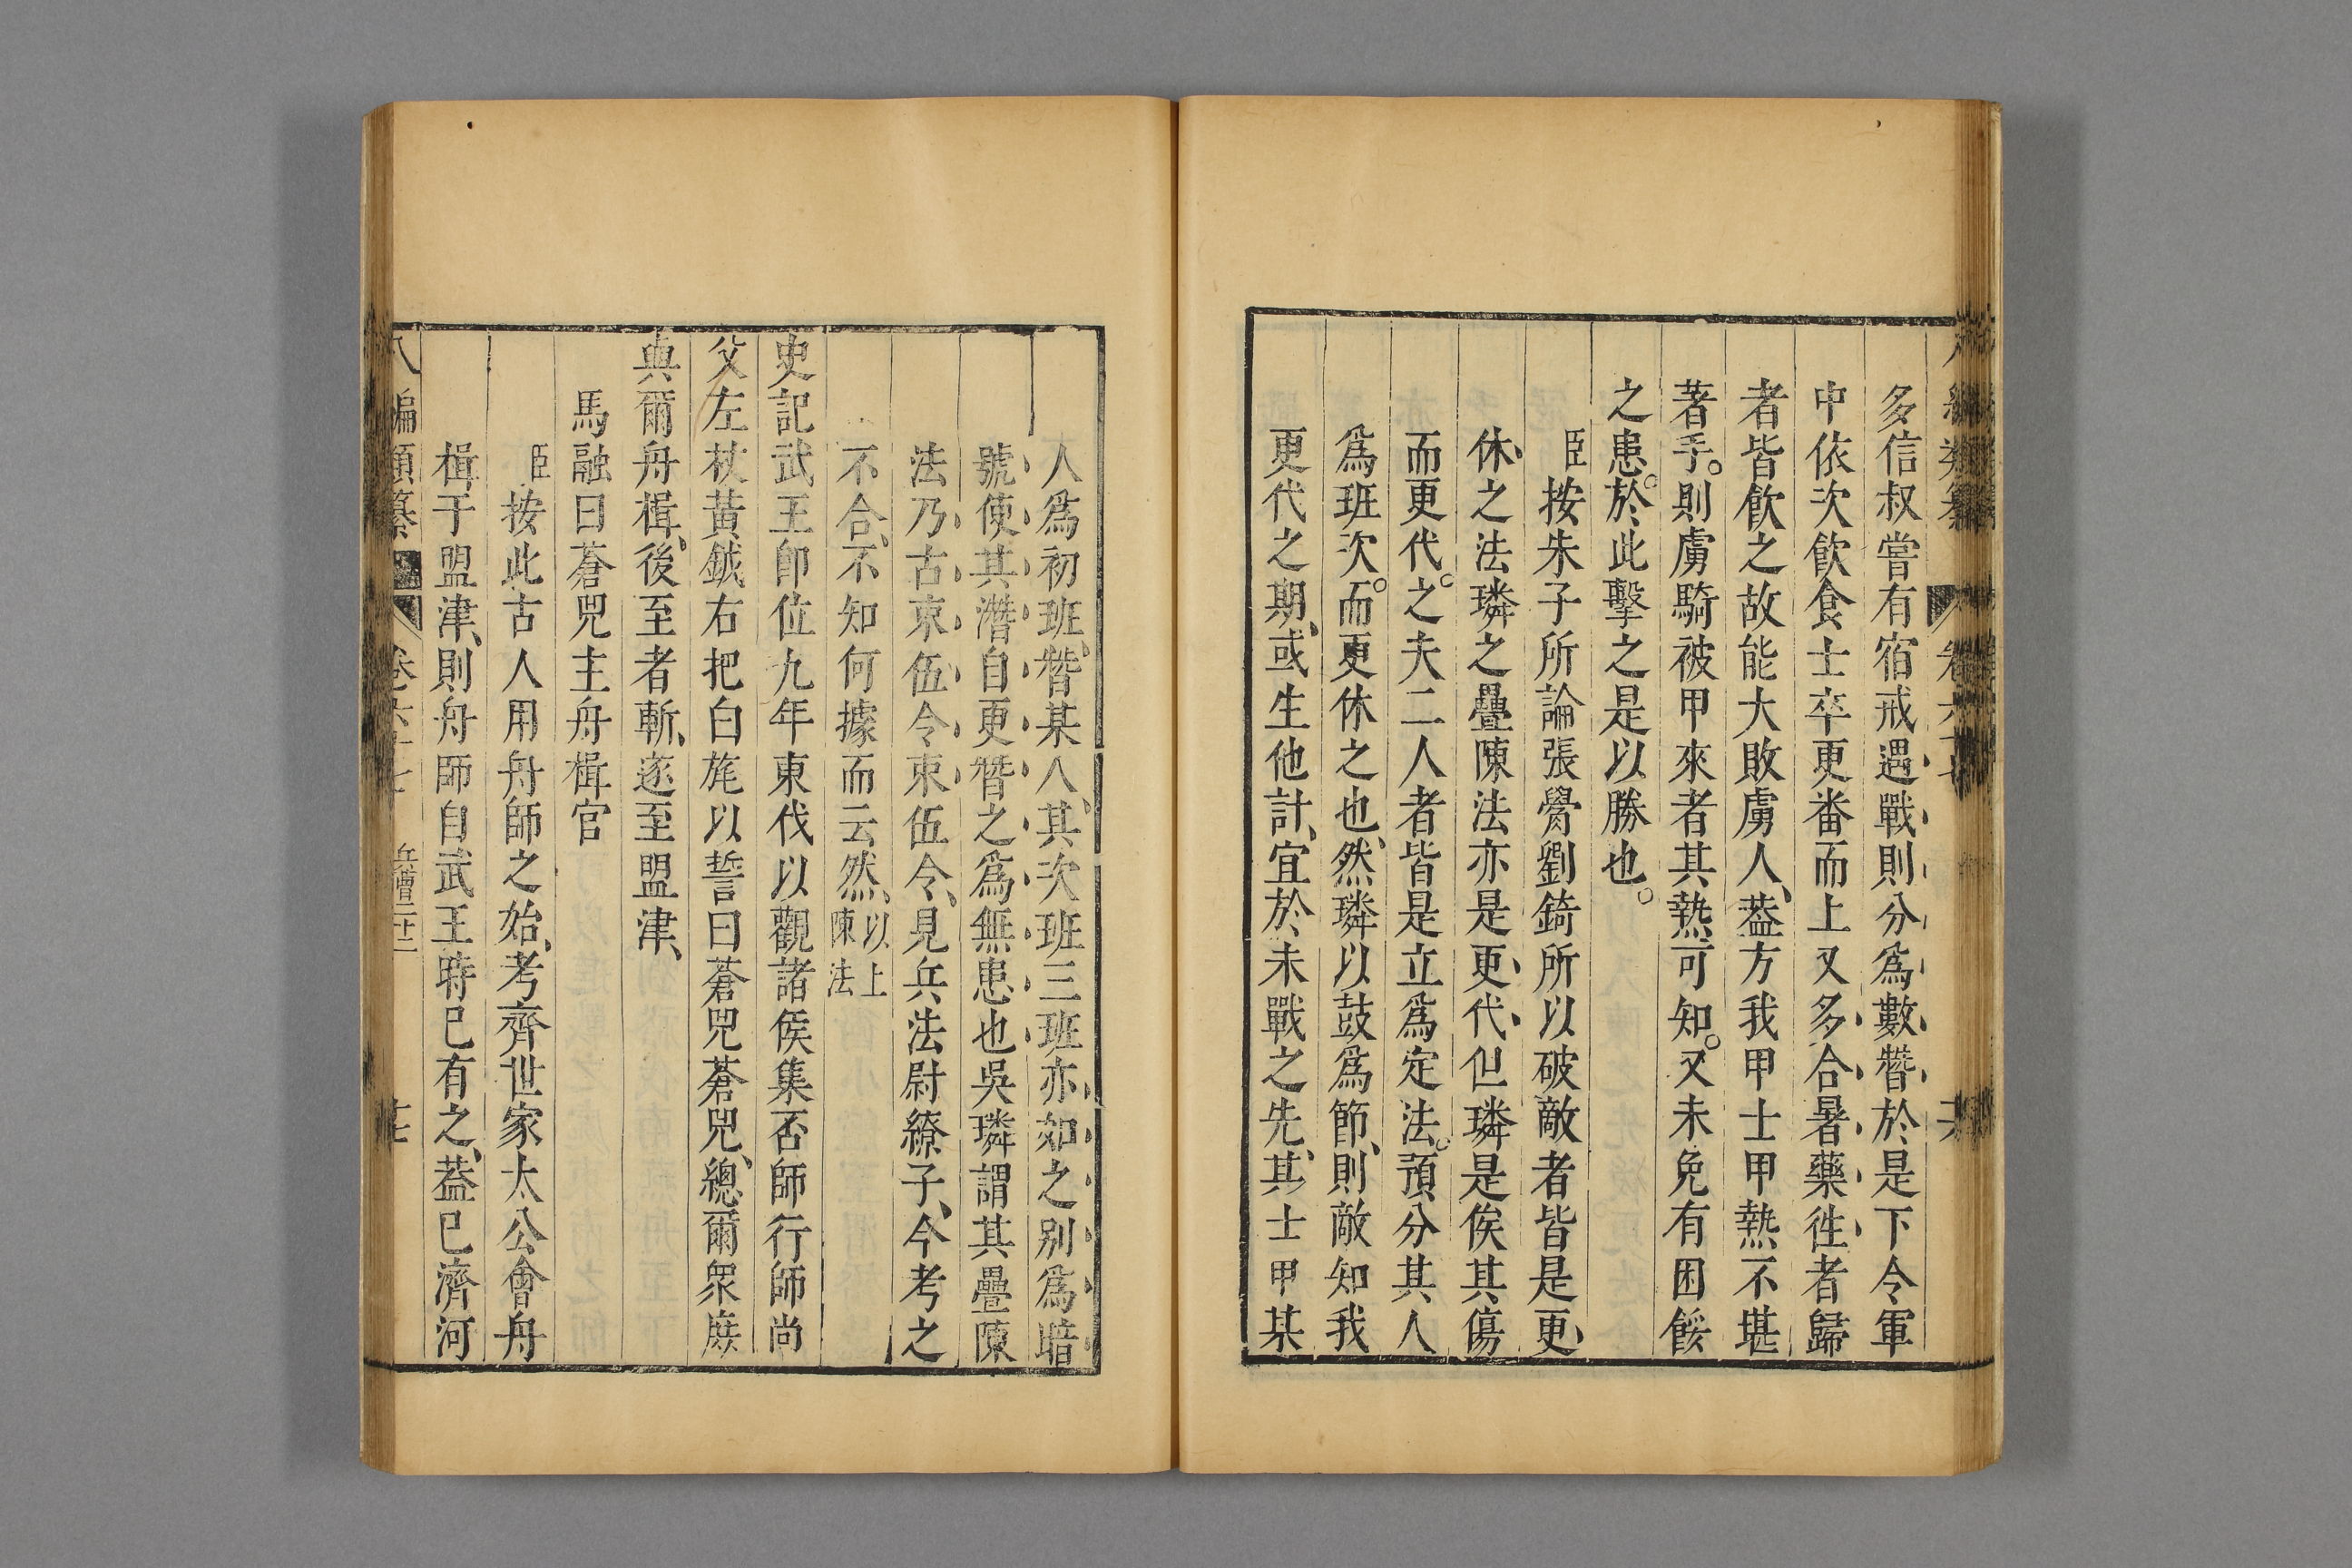 多信叔嘗有宿戒遇戰則分爲數替於是下令軍
中依次飲食士卒更番而上又多合暑藥徃者歸
者皆飲之故能大敗虜人葢方我甲士甲熱不堪
著手則虜騎被甲來者其熱可知又未免有困餒
之患於此擊之是以勝也
臣按朱子所論張𧥮劉錡所以破敵者皆是更
休之法璘之疊陳法亦是更代但璘是俟其傷
而更代之夫二人者皆是立爲定法預分其人
爲班次而更休之也然璘以鼓爲節則敵知我
更代之期或生他計宜於未戰之先其士甲某
人爲初班替某人其次班三班亦如之别爲暗
號使其潛自更替之爲無患也吳璘謂其疊陳
法乃古束伍令束伍令見兵法尉繚子今考之
不合不知何據而云然以上陳法
史記武王卽位九年東伐以觀諸侯集否師行師尚
父左杖黃鉞右把白旄以誓曰蒼兕蒼兕總爾衆庶
與爾舟楫後至者斬遂至盟津
馬融曰蒼兕主舟楫官
臣按此古人用舟師之始考齊世家太公會舟
楫于盟津則舟師自武王時已有之葢已濟河
八編類纂 卷六十七 兵曹二十二 十七